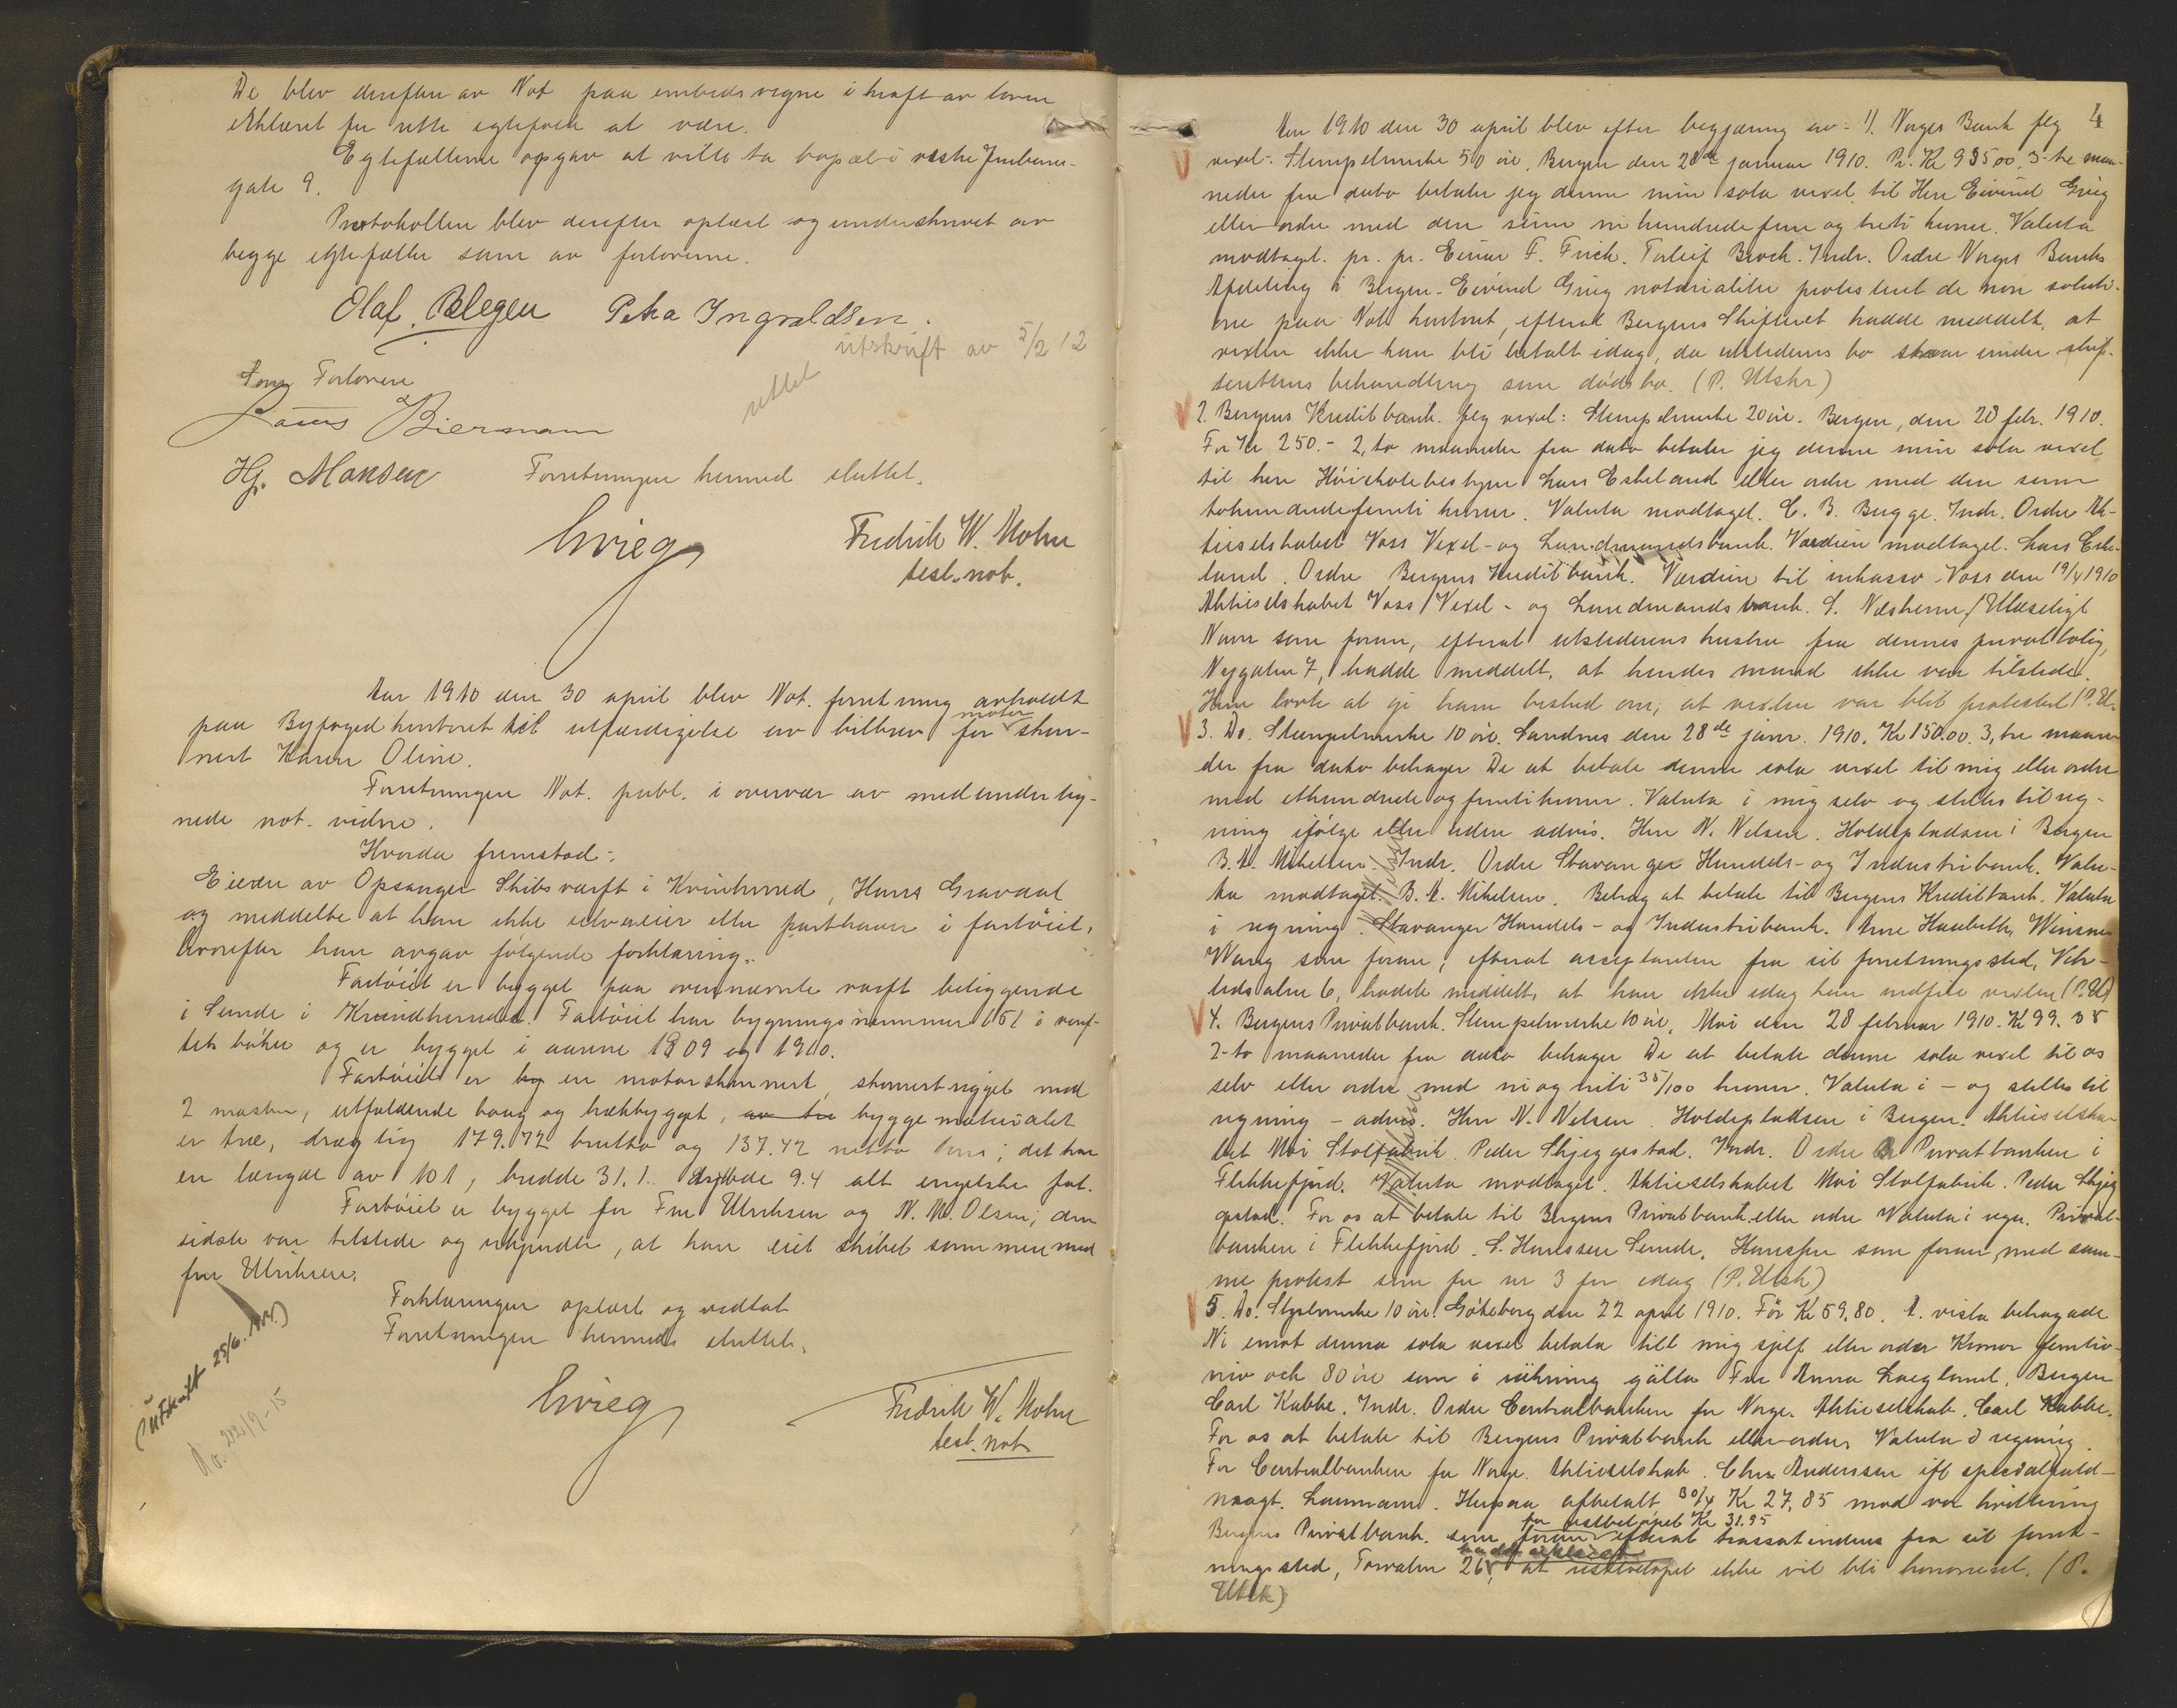 De blev derefter av Not paa embedsvegne i kraft av loven
erklæret for rette egtefolk at være.
Egtefællerne opgav at ville ta bopæl i vestre Jernbane-
gate 9.
Protokollen blev derefter oplæst og underskrevet av
begge egtefæller som av forloverne.
Olaf Blegen Petra Ingvaldsen.
utskrift av 5/2 12
rettet
Som Forlovere
Biermann
Hj. Monsen Forretningen hermed sluttet.
Fredrik W. Mohn
test. not.
Aar 1910 den 30 april blev Not. forretning avholdt
paa Byfogedkontoret til utfærdigelse av bilbrev for motor skon-
nert Karen Oline.
Forretningen Not. publ. i overvær av medunderteg-
nede not. vidne.
Hvorda fremstod:
Eieren av Opsanger Skibsværft i Kvinherred, Hans Gravdal
og meddelte at han ikke selv eier eller parthaver i fartøiet,
hvorefter han avgav følgende forklaring:
Fartøiet er bygget paa ovennævnte værft beliggende
i Sunde i Kvindherred. Fartøiet har bygningsnummer 151 i verf-
tets bøker og er bygget i aarene 1909 og 1910.
Fartøiet er by en motorskonnert, skonnertrigget med
2 master, utfaldende baug og hækbygget, av træ byggematerialet
er træ, drægtig 179.72 brutto og 137.42 netto tons; det har
en længde av 101, bredde 31.1. dybde 9.4 alt engelske fot.
Fartøiet er bygget for Fru Ulriksen og N. M. Olsen; den
sidste var tilstede og erkjendte, at han eiet skibet sammen med
fru Ulriksen.
Forklaringen oplæst og vedtat
Forretningen hermed sluttet.
(Utskrift 25/6.
22/9-15
Fredrik W. Mohn
test. not.
4
Aar 1910 den 30 april blev efter begjæring av: 1). Norges Bank flg
vexel: Stempelmerke 50 øre. Bergen den 28de januar 1910. Pr. Kr 935.00 3-tre maa-
neder fra dato betaler jeg denne min sola vexel til Herr Eivind Grieg
eller ordre med den sum nihundrede fem og treti kroner. Valuta
modtaget. pr. pr. Einar F. Frick. Torleif Broch. Indr. Ordre Norges Banks
Afdeling i Bergen. Eivind Grieg notarialiter protesteret de non soluti-
one paa Not. kontoret, efterat Bergens Skifteret hadde meddelt, at
vexlen ikke kan bli betalt idag, da utstederens bo staar under skif-
terettens behandling som dødsbo. (P. Utskr)
2. Bergens Kreditbank. flg vexel: Stempelmerke 20 øre. Bergen, den 28 febr. 1910.
For Kr 250.- 2, to maaneder fra dato betaler jeg denne min sola vexel
til herr Høiskolebestyrer Lars Eskeland eller ordre med den sum
tohundredefemti kroner. Valuta modtaget. C. B. Bugge. Indr. Ordre Ak-
tieselskabet Voss Vexel- og Landmandsbank. Værdien modtaget. Lars Eske-
land. Ordre Bergens Kreditbank. Værdien til inkasso. Voss den 19/4 1910
Aktieselskabet Voss Vexel- og Landmandsbank. S. Næsheim/Ulæseligt
Navn som foran, efterat utstederens hustru fra dennes privatbolig,
Nygaten 7, hadde meddelt, at hendes mand ikke var tilstede.
Hun lovte at gi ham besked om, at vexlen var blit protestert (P. U.
3. Do. Stempelmerke 10 øre. Sandnes den 28de janr. 1910. Kr 150.00. 3, tre maane-
der fra dato behager De at betale denne sola vexel til mig eller ordre
med ethundrede og femti kroner. Valuta i mig selv og stilles til reg-
ning ifølge eller uden advis. Herr N. Nelsen. Holdepladsen i Bergen
B. A. Mikelsen. Indr. Ordre Stavanger Handels- og Industribank. Valu-
ta modtaget. B. A. Mikelsen. Behag at betale til Bergens Kreditbank. Valuta
i regning. Stavanger Handels- og Industribank. Arne Winsnes
Wang som foran, efterat acceptanten fra sit forretningssted, Vetr-
lidsalm 6, hadde meddelt, at han ikke idag kan indfrie vexlen (P. U)
4. Bergens Privatbank. Stempelmerke 10 øre, Moi den 28 februar 1910. Kr 99.35
2-to maaneder fra dato behager De at betale denne sola vexel til os
selv eller ordre med ni og niti 35/100 kroner. Valuta i - og stilles til
regning - advis. Herr N. Nelsen. Holdepladsen i Bergen. Aktieselska-
bet Moi Stolfabrik. Peder Skjeggestad. Indr. Ordre Privatbanken i
Flekkefjord. Valuta modtaget. Aktieselskabet Moi Stolfabrik. Peder Skjeg-
gestad. For os at betale til Bergens Privatbank eller ordre Valuta i regn. Privat-
banken i Flekkefjord. S. Hanssen Sunde. som foran, med sam-
me protest som for nr 3 for idag (P. Utsk)
5. Do. Stplmerke 10 øre. Göteborg den 22 april 1910. För Kr 59,80. A. vista behagade
Ni emot denna sola vexel betala till mig sjelf eller order Kronor femtio-
nio och 80 öre som i räkning gälla Fru Anna Bergen
Carl Kabbe. Indr. Ordre Centralbanken for Norge. Aktieselskab. Carl Kabbe.
For os at betale til Bergens Privatbank eller ordre. Valuta i regning.
For Centralbanken for Norge. Aktieselskab. Chr. Anderssen ifl specialfuld-
magt. Laumann. Herpaa afbetalt 30/4 Kr 27,85 mod vor kvittering
Bergens Privatbank. som foran for restbeløpet Kr 31.95 efterat trassatinden fra sit forret-
ningssted, Torvalm 26, hadde erklæret at restbeløpet ikke vil bli honoreret. (P.
Utsk)